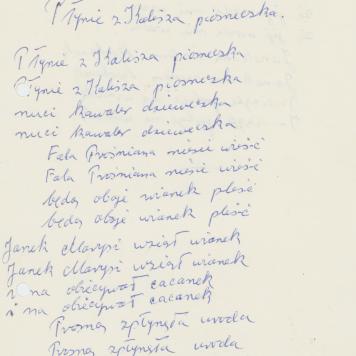 Płynie z Kalisza piosneczka.
Płynie z Kalisza piosneczka
Płynie z Kalisza piosneczka
nuci kawaler dzieweczka
nuci kawaler dzieweczka
Fala Prośniana niesie wieść
Fala Prośniana niesie wieść
będą oboje wianek pleść
będą oboje wianek pleść
Janek Marysi wziął wianek
Janek Marysi wziął wianek
i na obiecywał cacanek
i na obiecywał cacanek
Prosną zpłynęła uroda
Prosną zpłynęła uroda